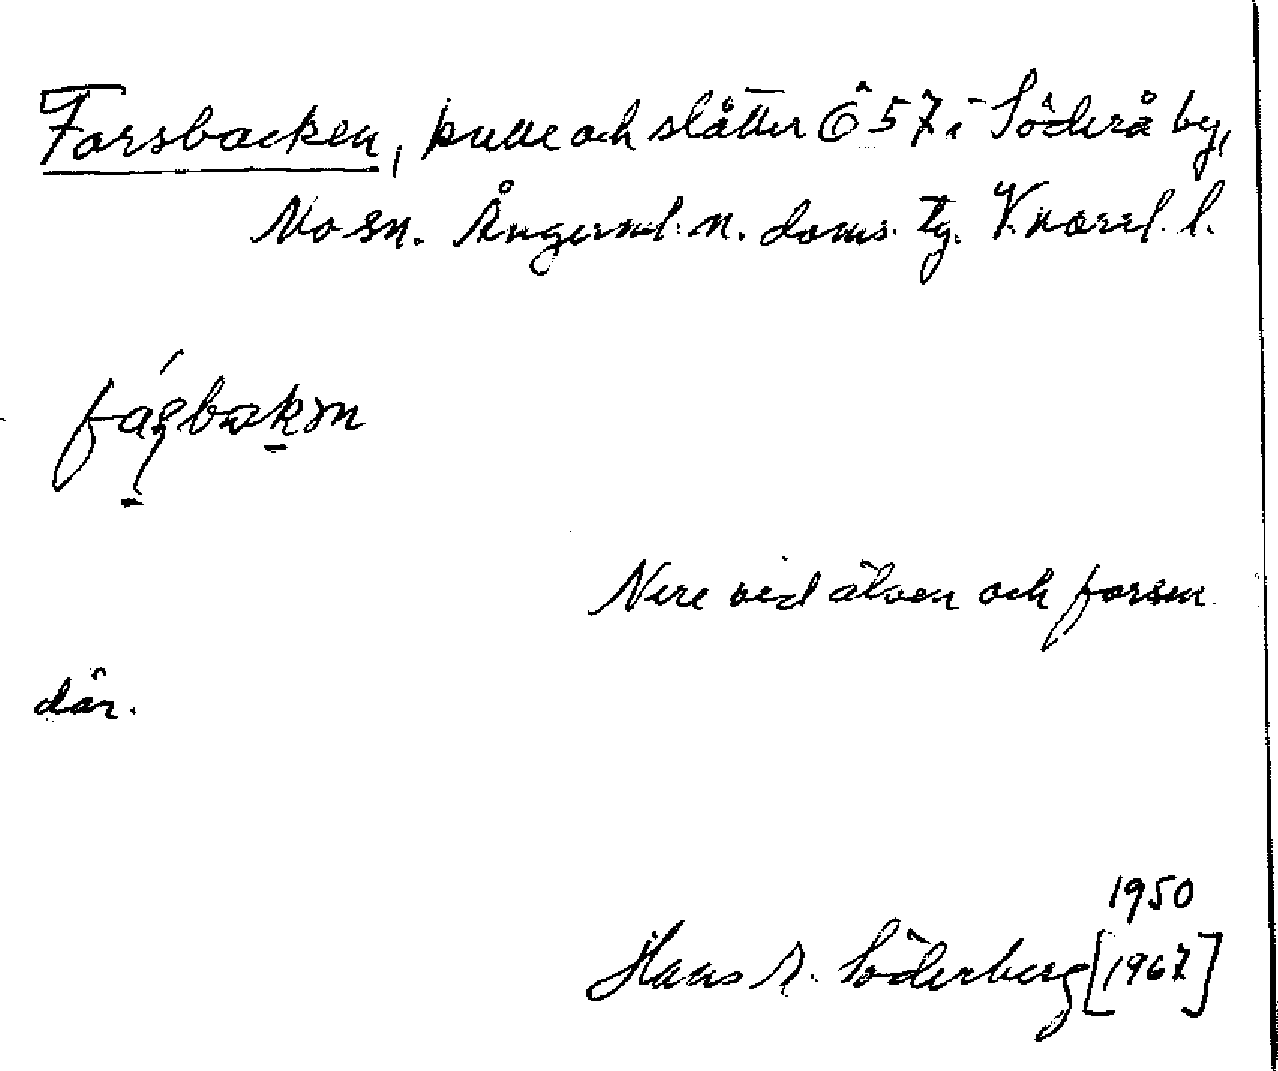 Forsbacken, kulle och slåtter Ö 57 i Söderå by,
Mo sn. Ångerml. n. doms. tg. V.norrl. l.
Nere vid älven och forsen
där.
1950
Hans A. Söderberg [1967]